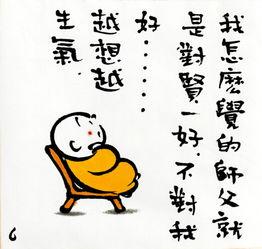 我怎麼覺的師父就
是對賢一好，不對我
好……
越想越
生氣。
6